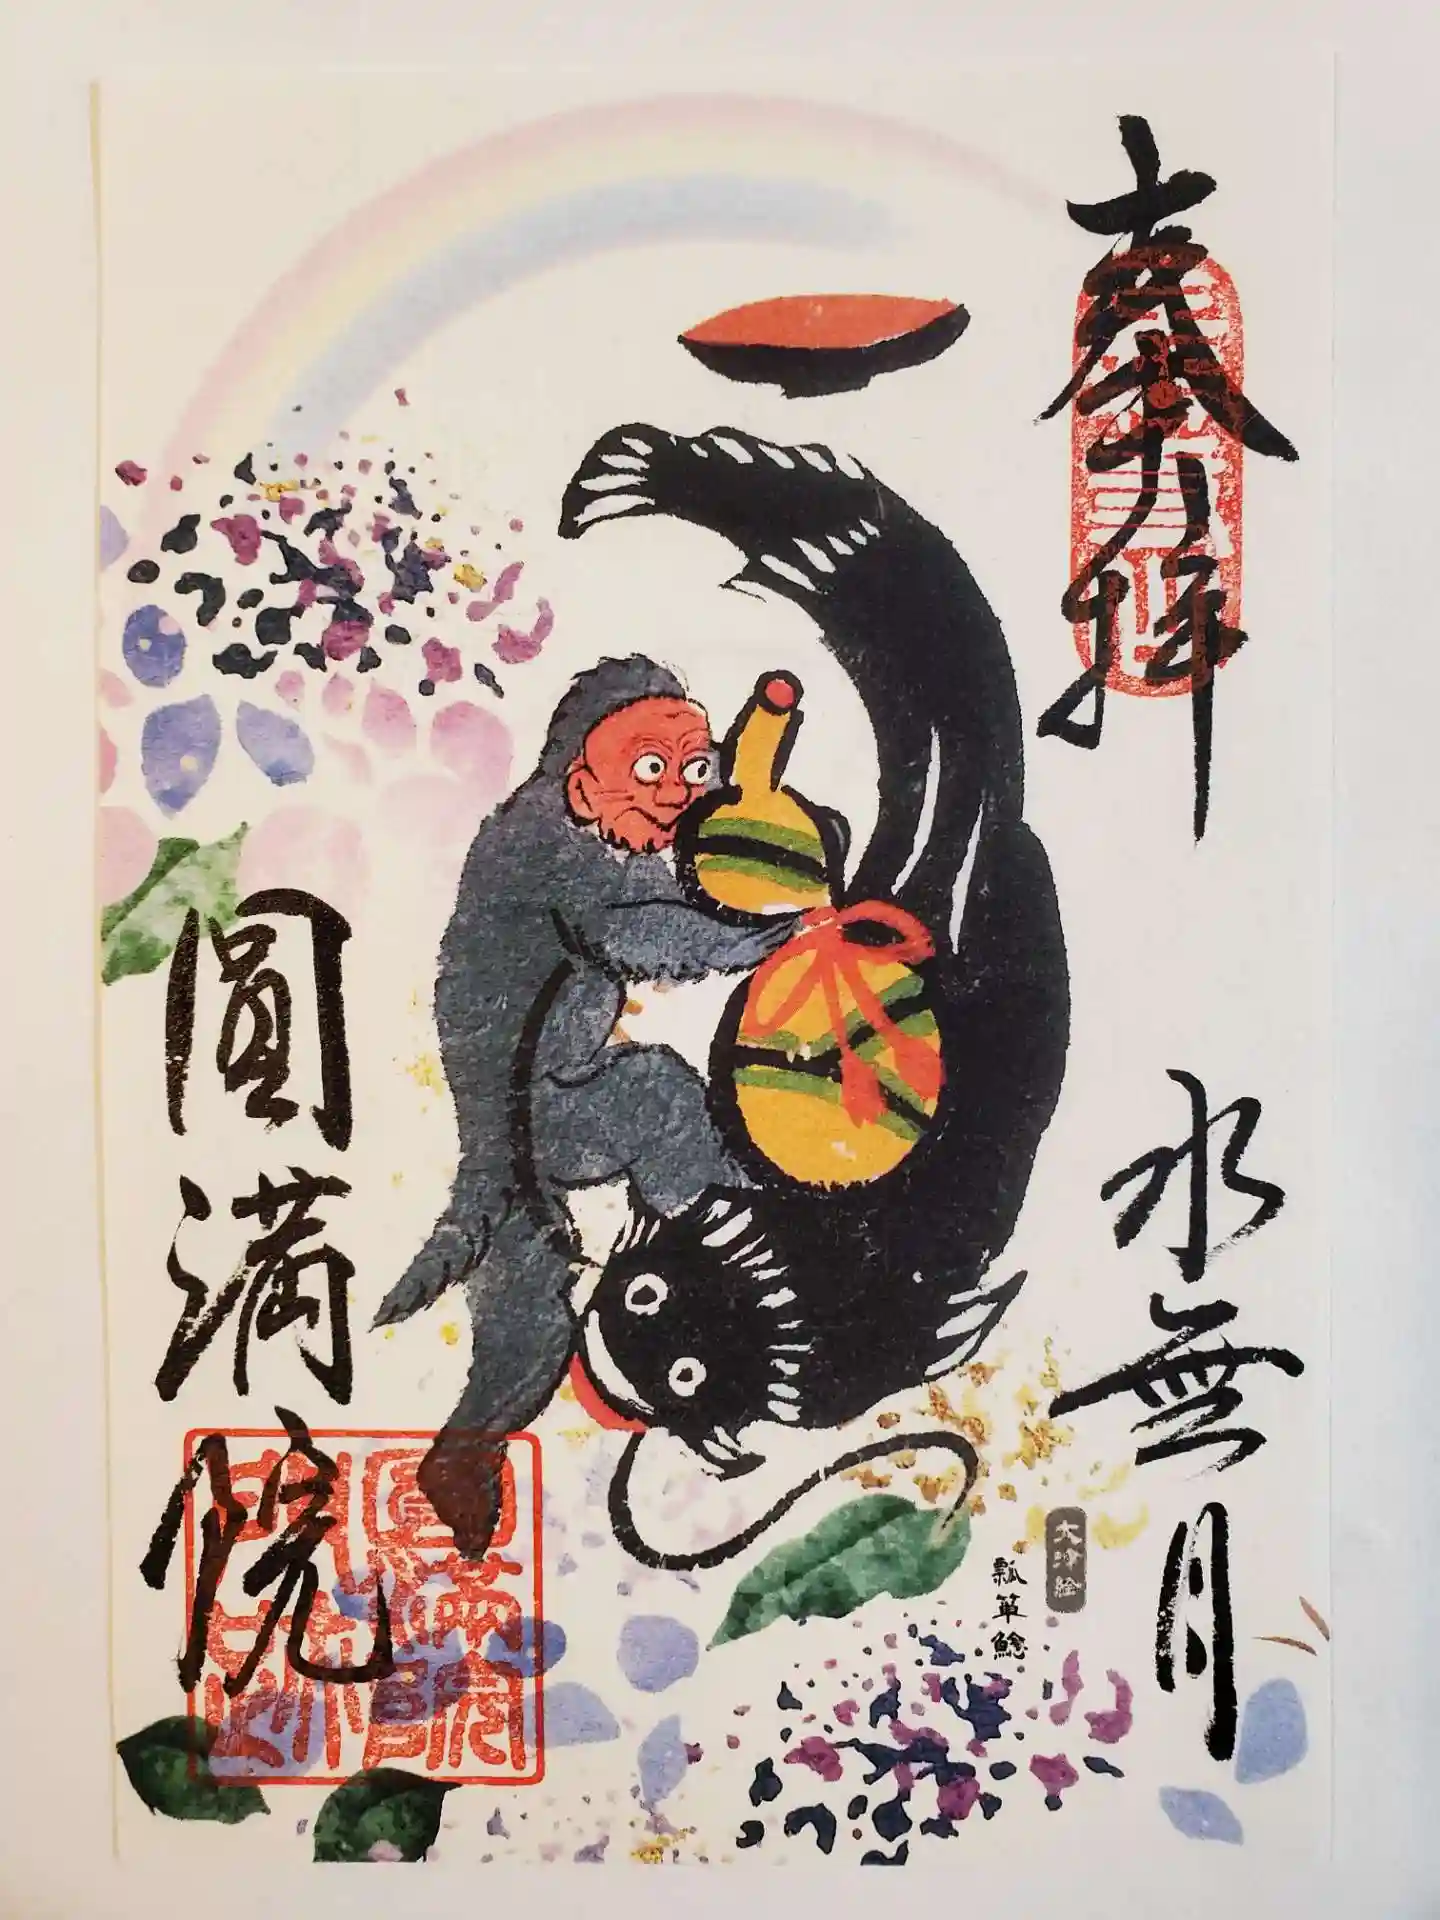 奉拝
水無月
大津絵
瓢箪鯰
圓満院